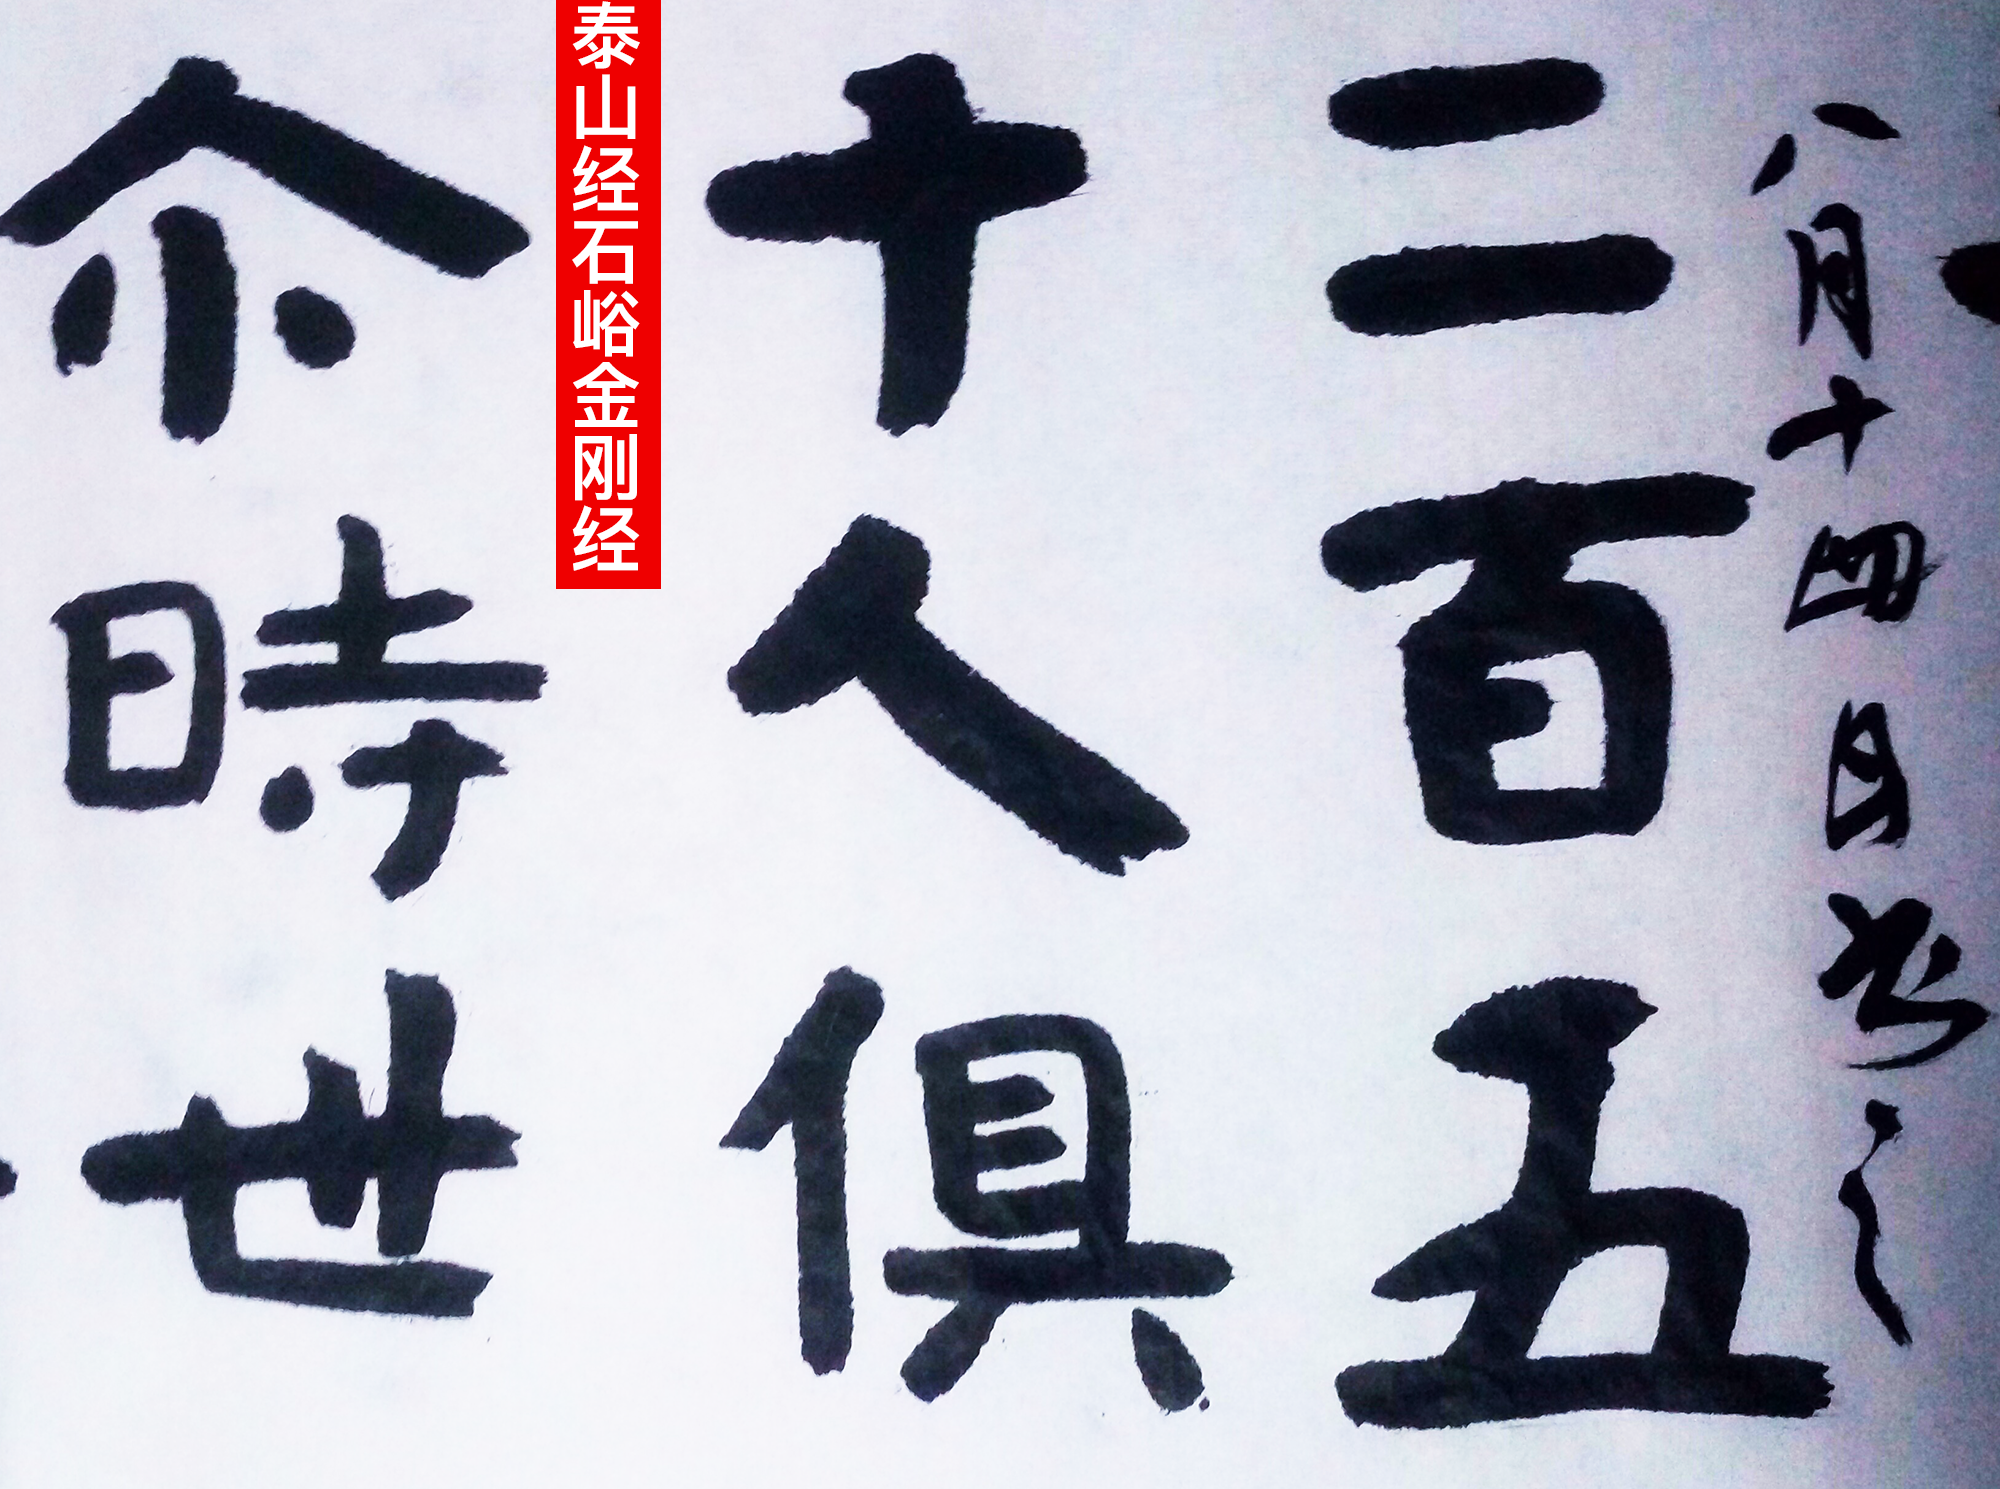 八月十四日书之
二百五
十人俱
尒時世
泰山经石峪金刚经